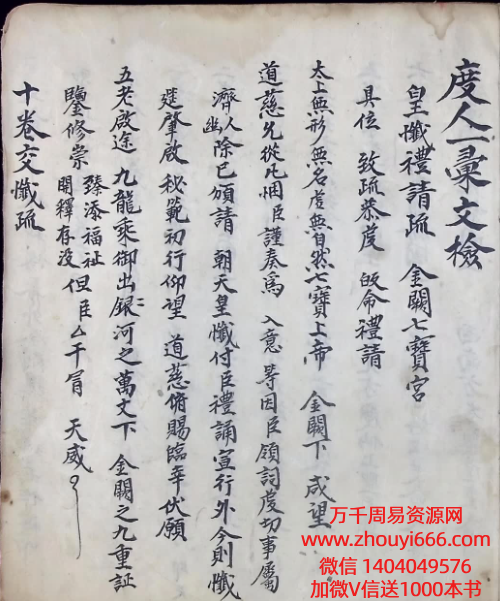 度人一彙文檢
皇懺禮請疏 金闕七寶宮
具位 致疏恭虔 皈命禮請
太上無形無名虛無自然七寶上帝 金闕下 咸望
道慈允從凡悃臣謹奏為 入意 等因臣領詞虔切事屬
濟人
幽 除已頒請 朝天皇懺付臣禮誦宣行外今則懺
筵肇啟秘範初行仰望 道慈俯賜臨幸伏願
五老啟途 九龍乘御出銀河之萬丈下 金闕之九重証
鑒修崇 臻添福祉
開釋存沒 但臣厶干冒 天威
十卷交懺疏
万千周易资源网
www.zhouyi666.com
微信 1404049576
加微V信送1000本书